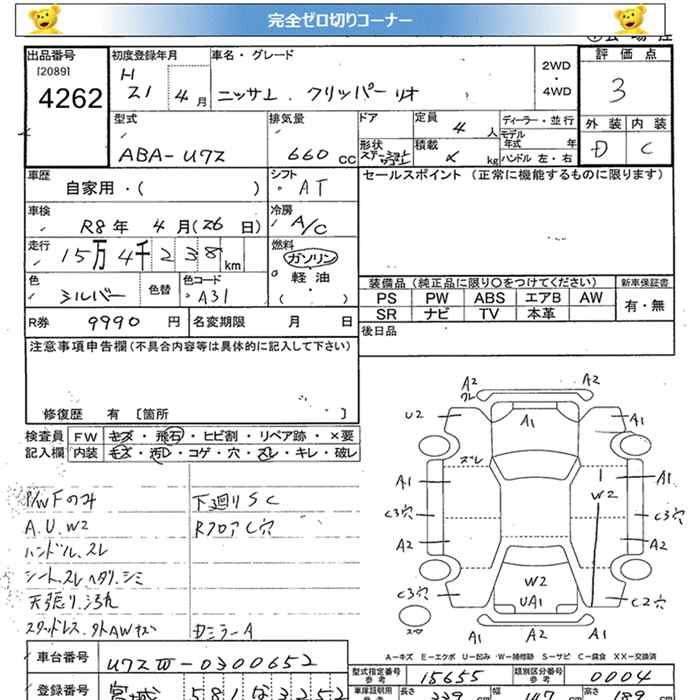 完全ゼロ切りコーナー
出品番号
[2089]
4262
初度登録年月
H
21 4月
車名・グレード
ニッサン クリッパーリオ
2WD
・
4WD
評価点
3
外装 内装
D C
型式
ABA-U72
排気量
660 CC
ドア
形状
定員
4 人
積載
kg
ディーラー・並行
モデル
年式 年
ハンドル 左・右
車歴
自家用・( )
シフト
AT
セールスポイント(正常に機能するものに限ります)
車検
R8年 4月(26日)
冷房
A/C
走行
15万4千238km
燃料
ガソリン
・
軽油
( ・ )
色
シルバー
色替
色コード
A31
装備品(純正品に限り○をつけてください)
新車保証書
PS PW ABS エアB AW
有・無
SR ナビ TV 本革
R券 9990円
名変期限 月 日
後日品
注意事項申告欄(不具合内容等は具体的に記入して下さい)
修復歴 有 [箇所 ]
検査員
記入欄
FW キズ・飛石・ヒビ割・リペア跡・×要
内装 キズ・汚レ・コゲ・穴・スレ・キレ・破レ
P/WFのみ
A.U.W2
ハンドル、スレ
シート、スレヘタリ、シミ
天張り、汚れ
スタッドレス、外AWキズ
下廻りSC
RフロアC穴
DミラーA
A2
クレ
A2
U2
A1
A1
ズレ
A1
A1
W2
C3穴
C3穴
A2
A2
C3穴
W2
UA1
C2穴
A1
A2
A1
A-キズ E-エクボ U-凹み W-補修跡 S-サビ C-腐食 XX-交換済
車台番号
U72W-0300652
型式指定番号
参考
15655
類別区分番号
参考
0004
登録番号
宮城 581 な3252
車庫証明用
長さ
339 cm
幅
147 cm
高さ
189 cm